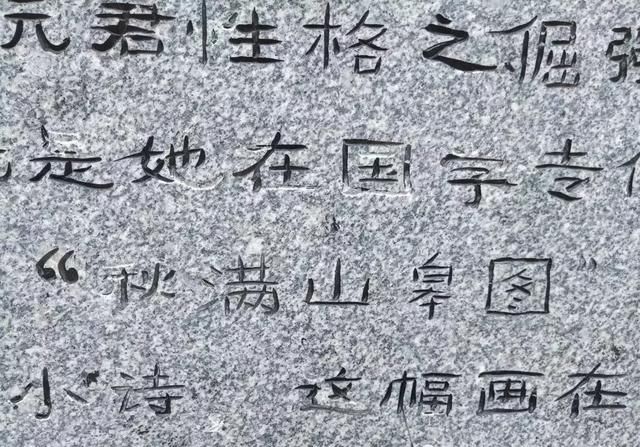 元君性格之倔强
是她在国学专
“秋满山皋图”
小诗 这幅画在